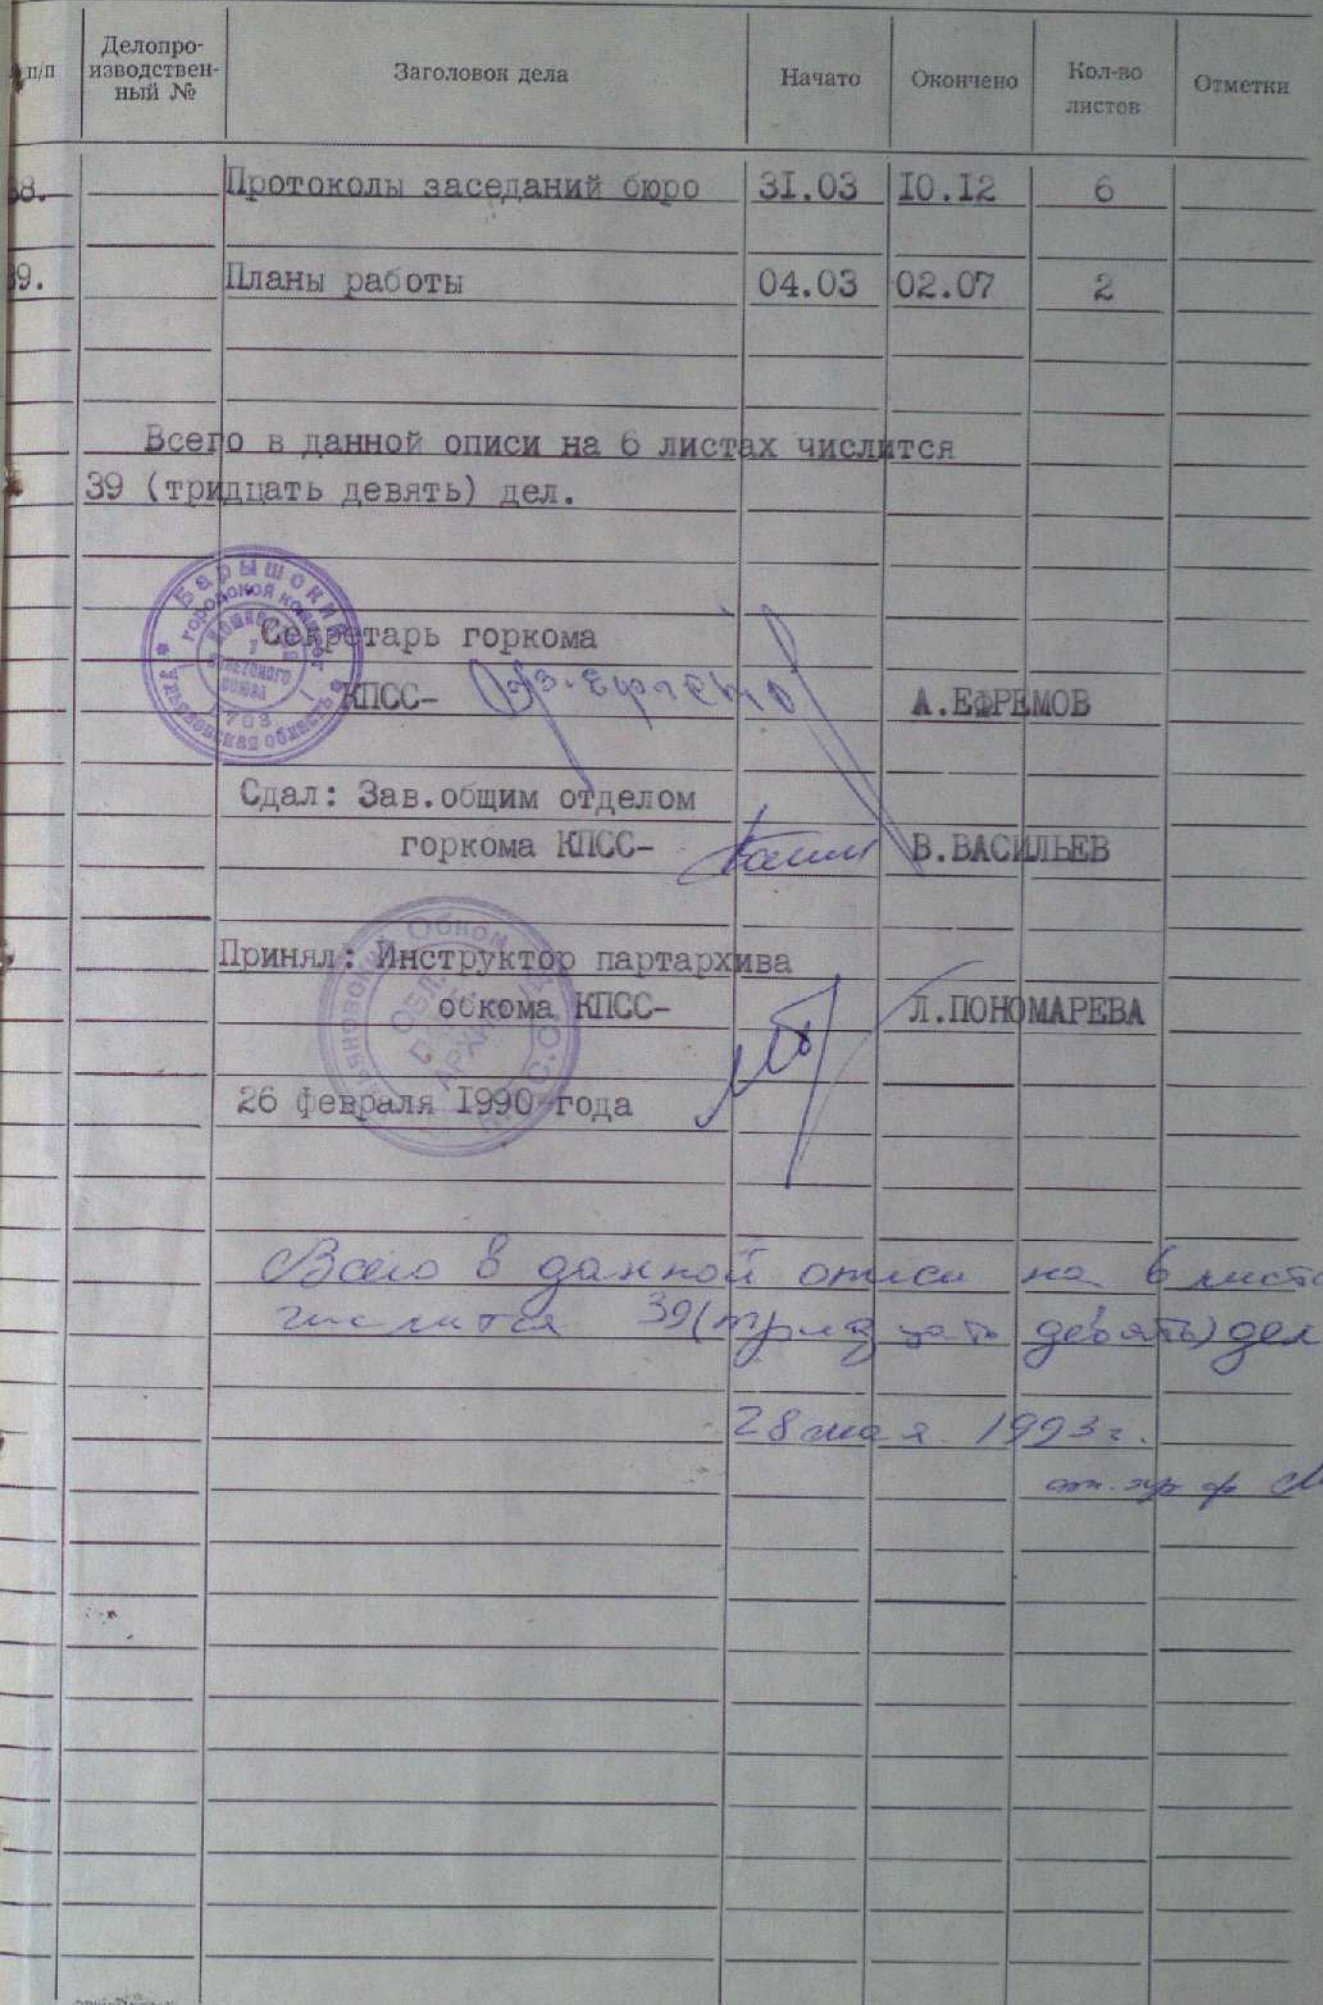 п/п Делопроизводственный № Заголовок дела Начато Окончено Кол-во листов Отметки
38. Протоколы заседаний бюро 31.03 10.12 6
39. Планы работы 04.03 02.07 2
Всего в данной описи на 6 листах числится
39 (тридцать девять) дел.
Барышский
городской комитет
Советского
Союза
703
Ульяновская область
Секретарь горкома
КПСС- А.ЕФРЕМОВ
Сдал: Зав.общим отделом
горкома КПСС- В.ВАСИЛЬЕВ
Обком
Принял: Инструктор партархива
обкома КПСС- Л.ПОНОМАРЕВА
26 февраля 1990 года
Всего в данной описи на 6 листа
числится 39 (тридцать девять) дел
28 мая 1993 г.